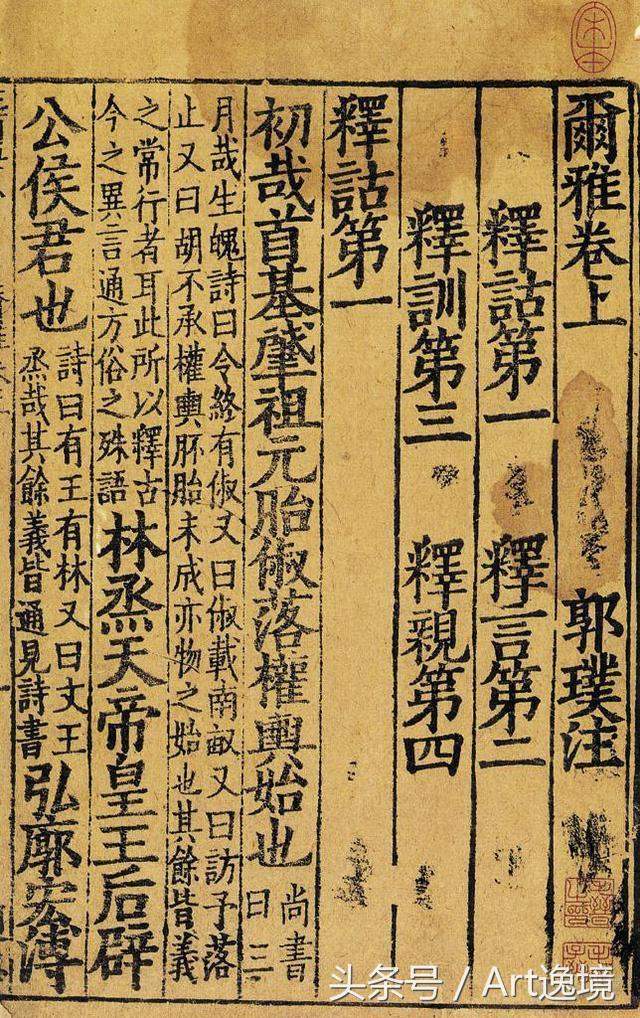 爾雅卷上 郭璞注
釋詁第一 釋言第二
釋訓第三 釋親第四
釋詁第一
初哉首基肇祖元胎俶落權輿始也 尚書曰三
月哉生魄詩曰令終有俶又曰俶載南畝又曰訪予落
止又曰胡不承權輿胚胎未成亦物之始也其餘皆義
之常行者耳此所以釋古
今之異言通方俗之殊語 林烝天帝皇王后辟
公侯君也 詩曰有王有林又曰文王
烝哉其餘義皆通見詩書 弘廓宏溥
头条号 / Art逸境